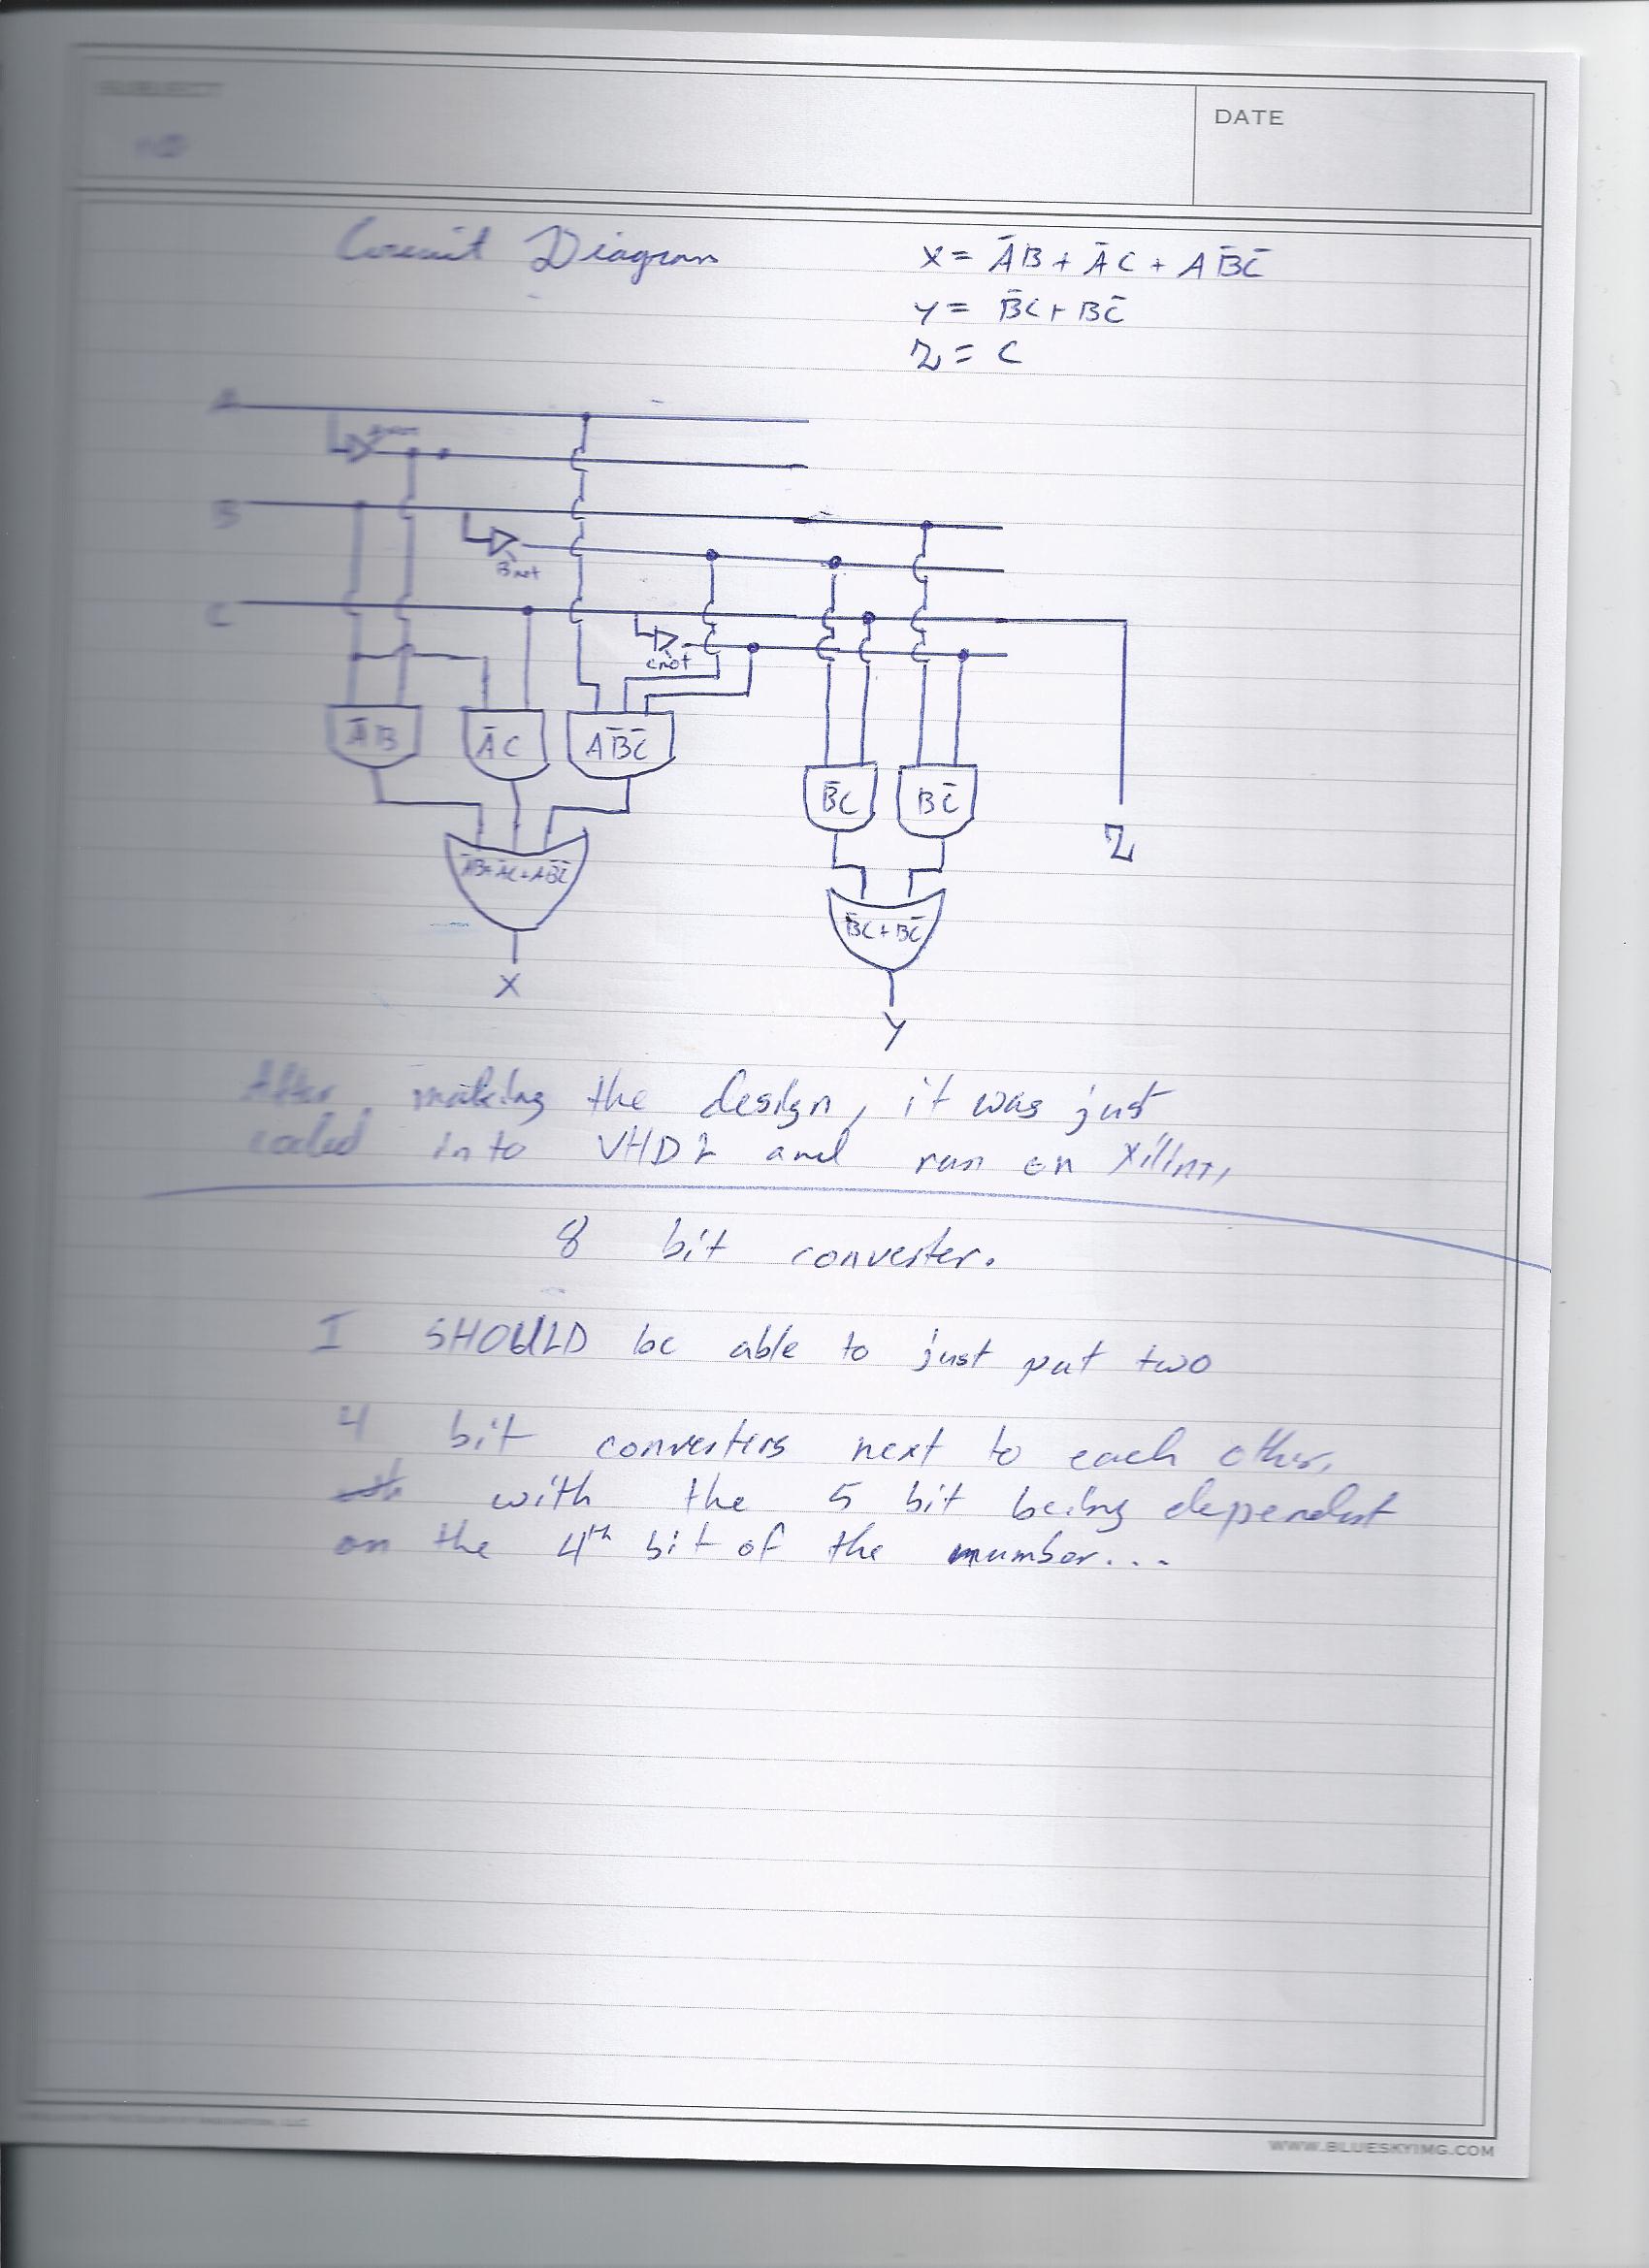 SUBJECT
DATE
Circuit Diagram
X = A̅B + A̅C + AB̅C̅
Y = B̅C + BC̅
Z = C
A
Anot
B
Bnot
C
Cnot
A̅B A̅C AB̅C̅
B̅C BC̅
Z
A̅B+A̅C+AB̅C̅
B̅C+BC̅
X
Y
After making the design, it was just
coded into VHDL and run on
8 bit converter.
I SHOULD be able to just put two
4 bit converters next to each other,
with the 5 bit being dependat
on the 4th bit of the number...
WWW.BLUESKYIMG.COM